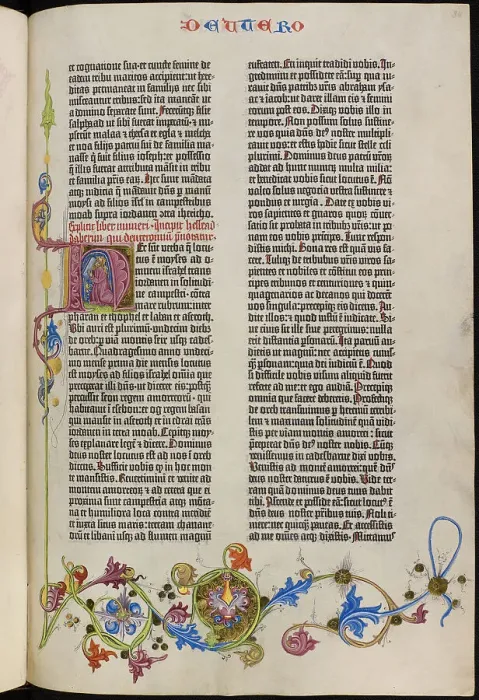 DEUTERO
et cognatione sua: et cuncte femine de
eadem tribu maritos accipient: ut here-
ditas permaneat in familijs: nec sibi
misceantur tribus: sed ita maneāt ut
a domino separate sunt. Feceruntqꝫ filie
salphaad ut fuerat imperatū: & nu-
pserunt maala & thersa et egla & melcha
et noa filijs patrui sui de familia ma-
nasse qui fuit filius ioseph: et possessio
que illis fuerat attributa māsit in tribu
et familia p̄ris eaꝝ. Hec sunt mādata
atqꝫ iudicia que mādavit dn̄s per manū
moysi ad filios isrl̄ in campestribus
moab supra iordanem cōtra iherico.
Explicit liber numeri. Incipit
dabarim qui deuteronomiū
Hec sūt verba que locu-
tus ē moyses ad o-
mnem israhel trans
iordanem in solitudi-
ne campestri: cōtra
mare rubrum: inter
pharan et thophel et laban et aseroth.
Ubi auri est plurimū: undecim diebꝫ
de oreb per viā montis seir usqꝫ cades-
barne. Quadragesimo anno undeci-
mo mense prima die mensis locutus
est moyses ad filios israhel omnia que
preceperat illi dn̄s ut diceret eis: postqꝫ
percussit seon regem amorreorū: qui
habitavit ī esebon: et og regem basan
qui mansit in aseroth et in edrai trans
iordanem in terra moab. Cepitqꝫ moy-
ses explanare legē & dicere. Dominus
deus noster locutus est ad nos ī oreb
dicens. Sufficit vobis qꝫ in hoc mon-
te mansistis. Revertimini et venite ad
montem amorreoꝝ: & ad cetera que ei
proxima sunt campestria atqꝫ mōta-
na et humiliora loca contra meridiē
et iuxta litus maris: terram chanane-
orū et libani usqꝫ ad flumen magnū
eufraten. En inquit tradidi vobis. In-
gredimini et possidete eā: sup̄ qua iu-
ravit dn̄s patribꝫ vr̄is abraham ysa-
ac & iacob: ut daret illam eis & semini
eorum post eos. Dixiqꝫ vobis illo in
tempore. Non possum solus sustine-
re vos: quia dn̄s deꝰ noster multipli-
cavit vos: et estis hodie sicut stelle celi
plurimi. Dominus deus patrū vr̄oꝝ
addat ad hunc numerū multa milia:
et benedicat vobis sicut locutus ē. Nō
valeo solus negocia vestra sustinere &
pondus et iurgia. Date ex vobis vi-
ros sapientes et gnaros: quoꝝ cōver-
satio sit probata in tribubꝫ vr̄is: ut po-
nam eos vobis prīcipes. Tunc respon-
distis michi. Bona res est quā vis fa-
cere. Tuliqꝫ de tribubus vr̄is viros sa-
pientes et nobiles et cōstitui eos prin-
cipes tribunos et centuriones & quin-
quagenarios ac decanos qui docerēt
vos singula: precepiqꝫ eis dicens. Au-
dite illos: & quod iustū ē iudicate. Si-
ve civis sit ille sive peregrinus: nulla
erit distantia ꝑsonarū. Ita parvū au-
dietis ut magnū: nec accipietis cuiusqꝫ
ꝑsonam: quia dei iudiciū ē. Quod
si difficile vobis visum aliquid fuerit
referte ad me: et ego audiā. Precepiqꝫ
omnia que facere deberetis. Profectiqꝫ
de oreb transivimus per heremū terribi-
lem & maximam solitudinē quā vidi-
stis per viam montis amorrei: sicut
preceperat dn̄s deꝰ noster nobis. Cūqꝫ
venissemus in cadesbarne dixi vobis.
Venistis ad montē amorrei: quē dn̄s
deus noster daturus ē vobis. Vide ter-
ram quā dominus deus tuus dabit
tibi. Ascende et posside eā: sicut locutꝰ ē
dn̄s deus noster patribus tuis. Noli ti-
mere: nec quicqꝫ paveas. Et accessistis
ad me omnes atqꝫ dixistis. Mittamꝰ